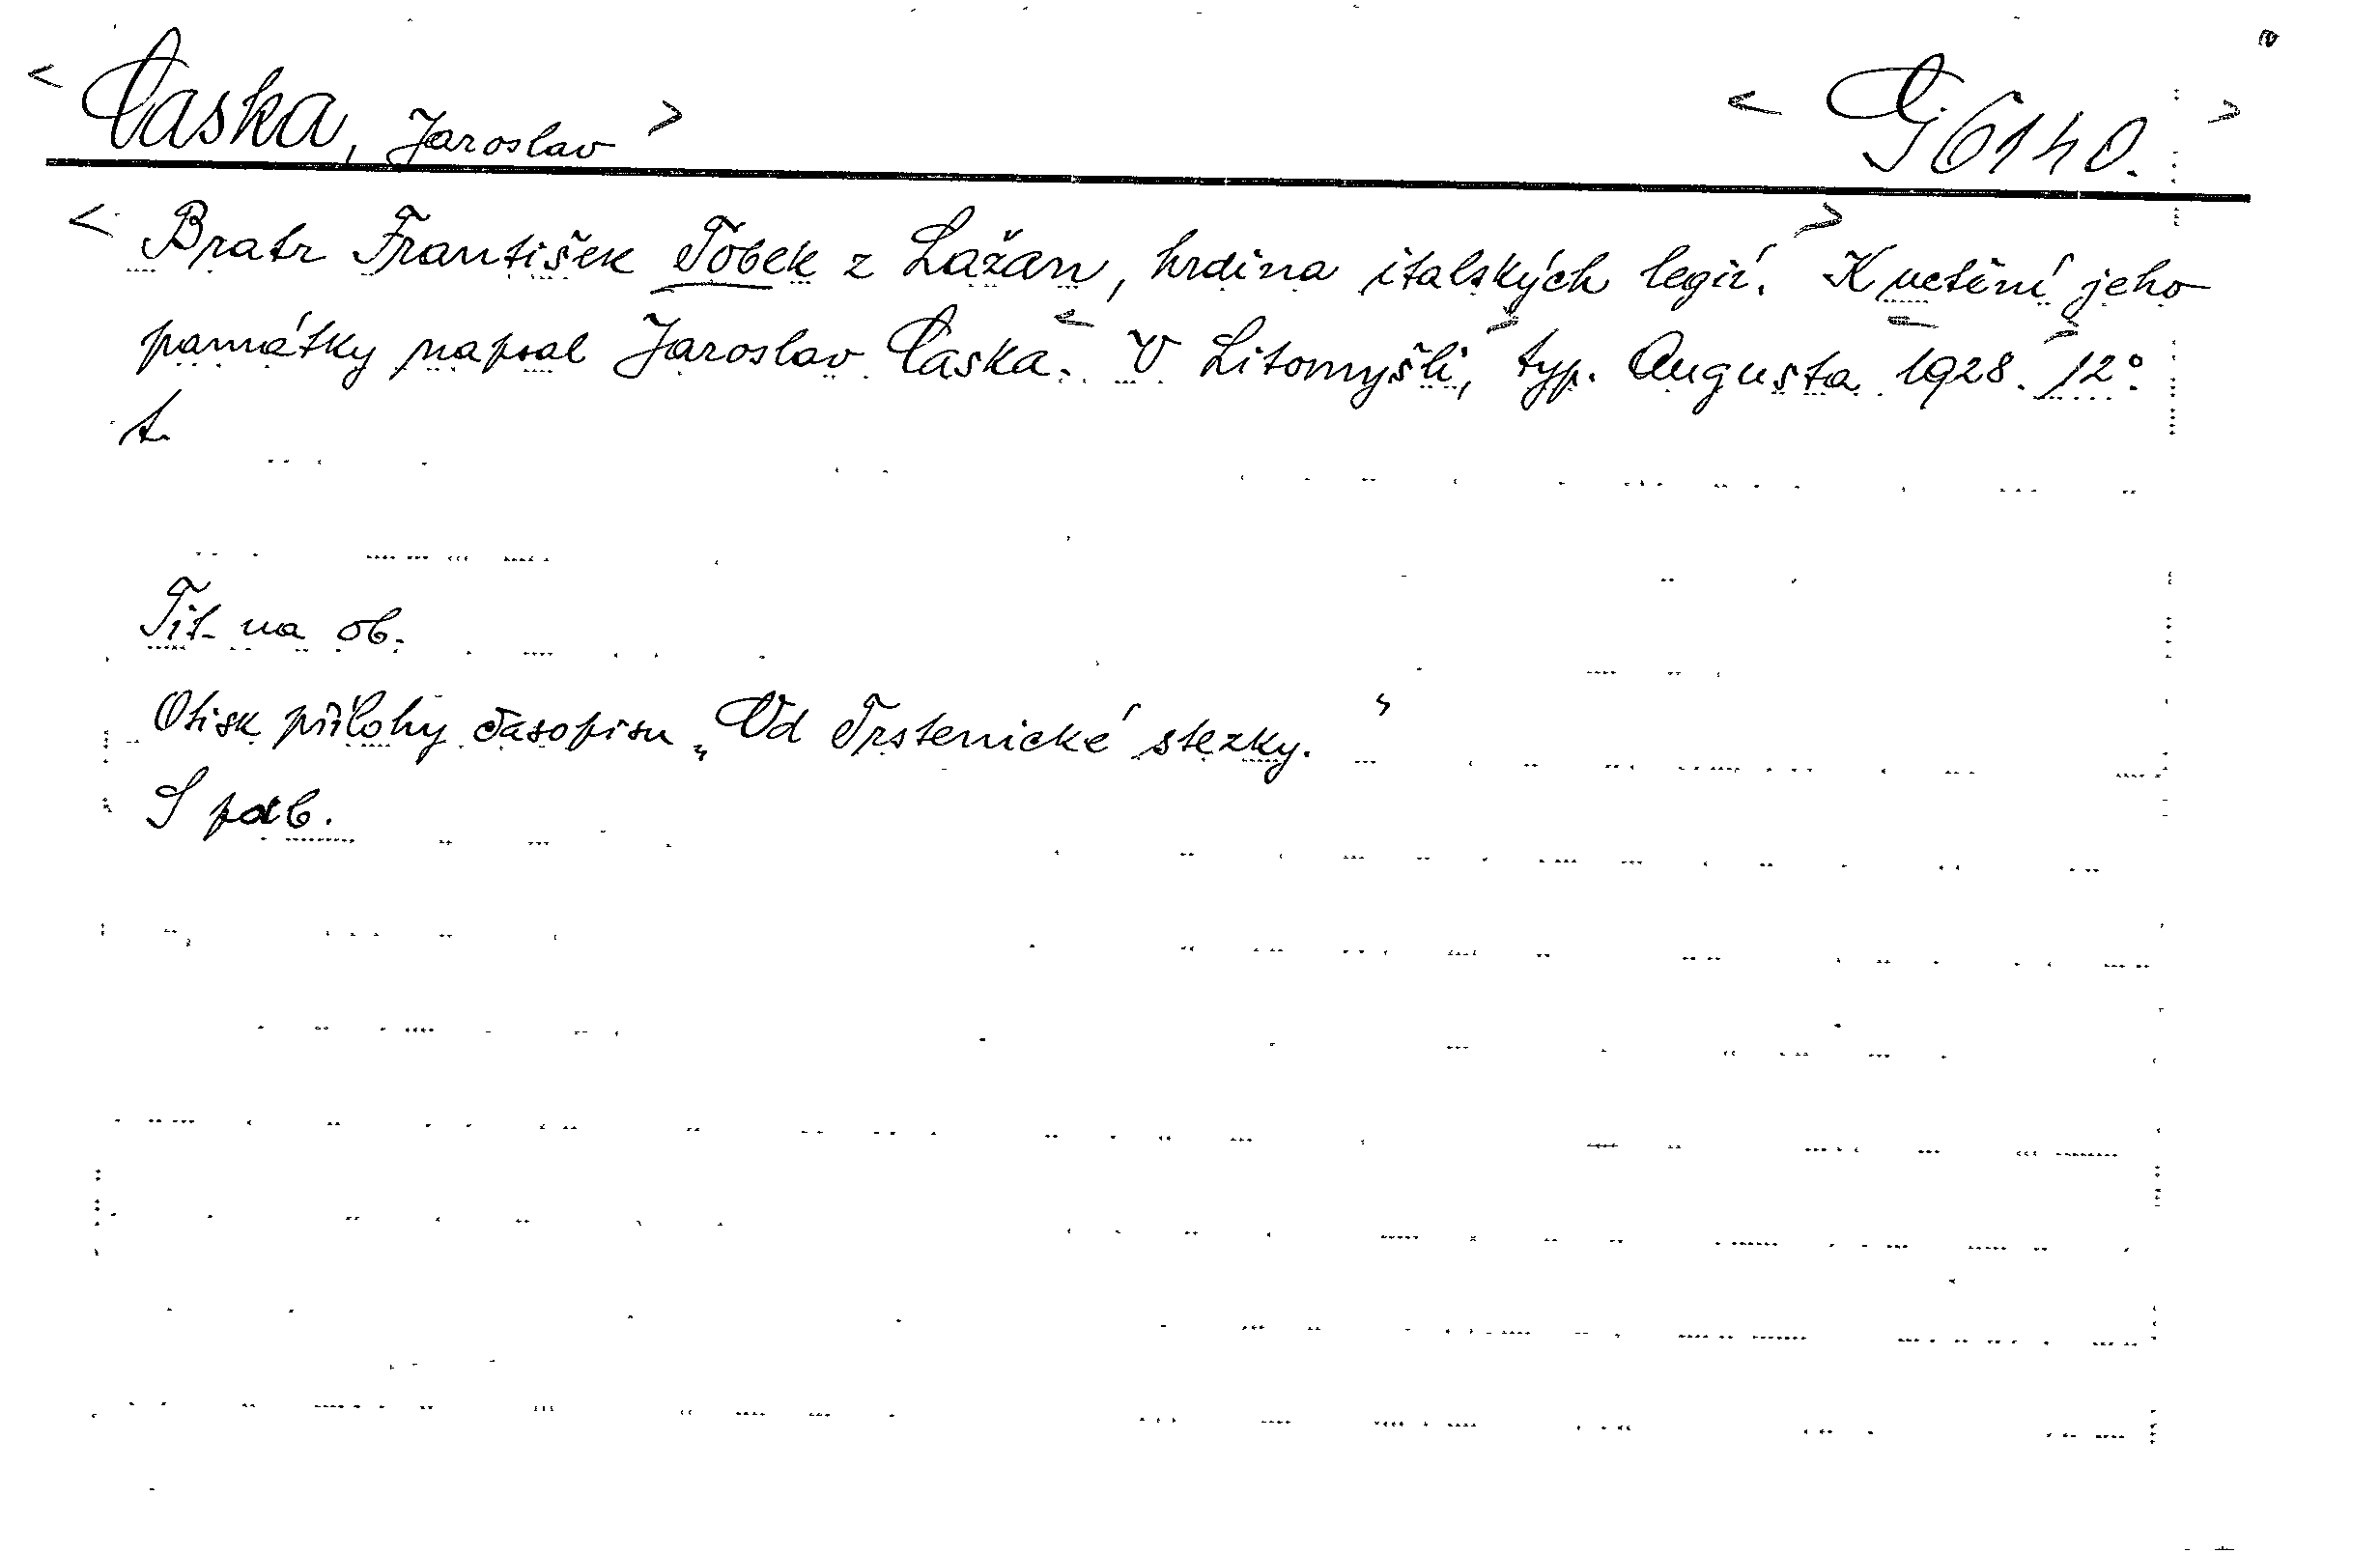 < Časka, Jaroslav > < Gi 6140. >
< Bratr František Tobek z Lažan, hrdina italských legií. > K uctění jeho
památky napsal Jaroslav Časka. < V Litomyšli, > typ. Augusta < 1928. > 12°.
t.
Tit. na ob.
Otisk přílohy časopisu „Od Trstenické stezky."
S pdb.